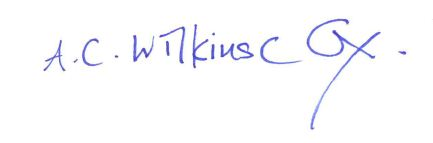 A.C. Wilkinsc Cox.